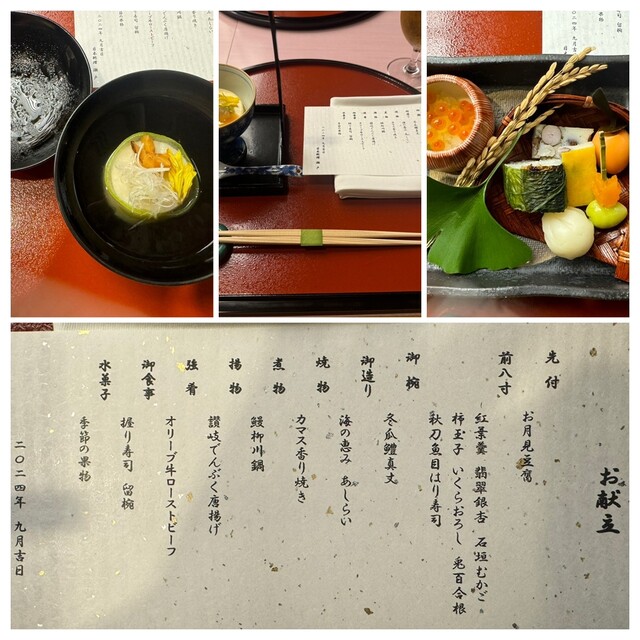 お献立
先付
お月見豆腐
前八寸
紅葉羹 翡翠銀杏 石垣むかご
柿玉子 いくらおろし 兎百合根
秋刀魚目はり寿司
御椀
冬瓜鱧真丈
御造り
海の恵み あしらい
焼物
カマス香り焼き
煮物
鰻柳川鍋
揚物
讃岐でんぶく唐揚げ
強肴
オリーブ牛ローストビーフ
御食事
握り寿司 留椀
水菓子
季節の果物
二〇二四年 九月吉日